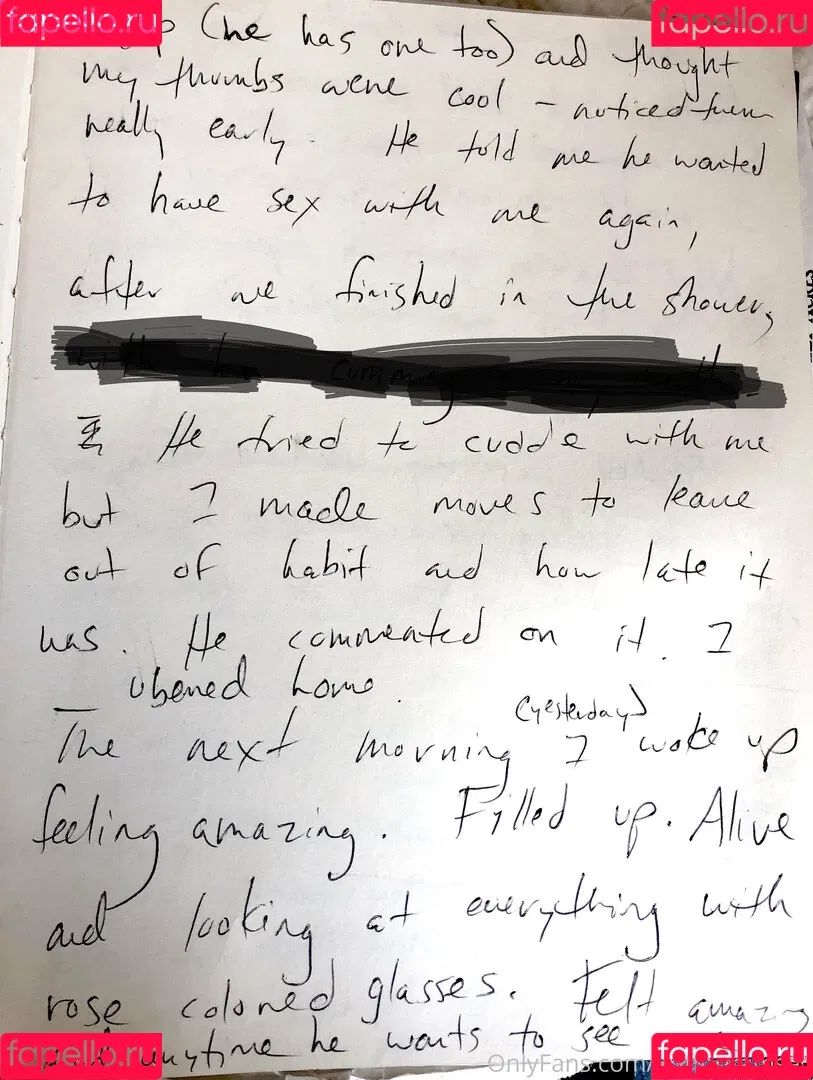 fapello.ru fapello.ru
(he has one too) and thought
my thumbs were cool - noticed them
really early. He told me he wanted
to have sex with me again,
after we finished in the shower,
He tried to cuddle with me
but I made moves to leave
out of habit and how late it
was. He commented on it. I
ubered home.
(yesterday)
The next morning I woke up
feeling amazing. Filled up. Alive
and looking at everything with
rose colored glasses. Felt amazing
anytime he wants to see
fapello.ru OnlyFans.com/ fapello.ru